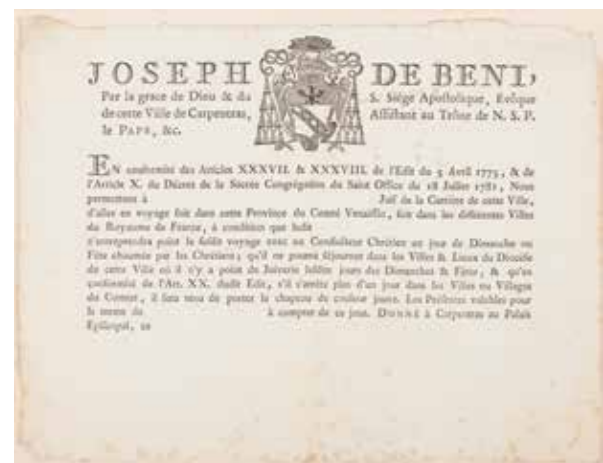 JOSEPH DE BENI,
Par la grace de Dieu & du S. Siége Apostolique, Evêque
de cette Ville de Carpentras, Assistant au Trône de N. S. P.
le PAPE, &c.
EN conformité des Articles XXXVII. & XXXVIII. de l'Edit du 5 Avril 1775, & de
l'Article X. du Décret de la Sacrée Congrégation du Saint Office du 18 Juillet 1781, Nous
permettons à Juif de la Carriere de cette Ville,
d'aller en voyage soit dans cette Province du Comté Venaissin, soit dans les différentes Villes
du Royaume de France, à condition que ledit
n'entreprendra point le susdit voyage avec un Conducteur Chrétien un jour de Dimanche ou
Fête chaumée par les Chrétiens; qu'il ne pourra séjourner dans les Villes & Lieux du Diocèse
de cette Ville où il n'y a point de Juiverie lesdits jours des Dimanches & Fêtes, & qu'en
conformité de l'Art. XX. dudit Edit, s'il s'arrête plus d'un jour dans les Villes ou Villages
du Comtat, il sera tenu de porter le chapeau de couleur jaune. Les Présentes valables pour
le terme de à compter de ce jour. DONNÉ à Carpentras au Palais
Episcopal, ce